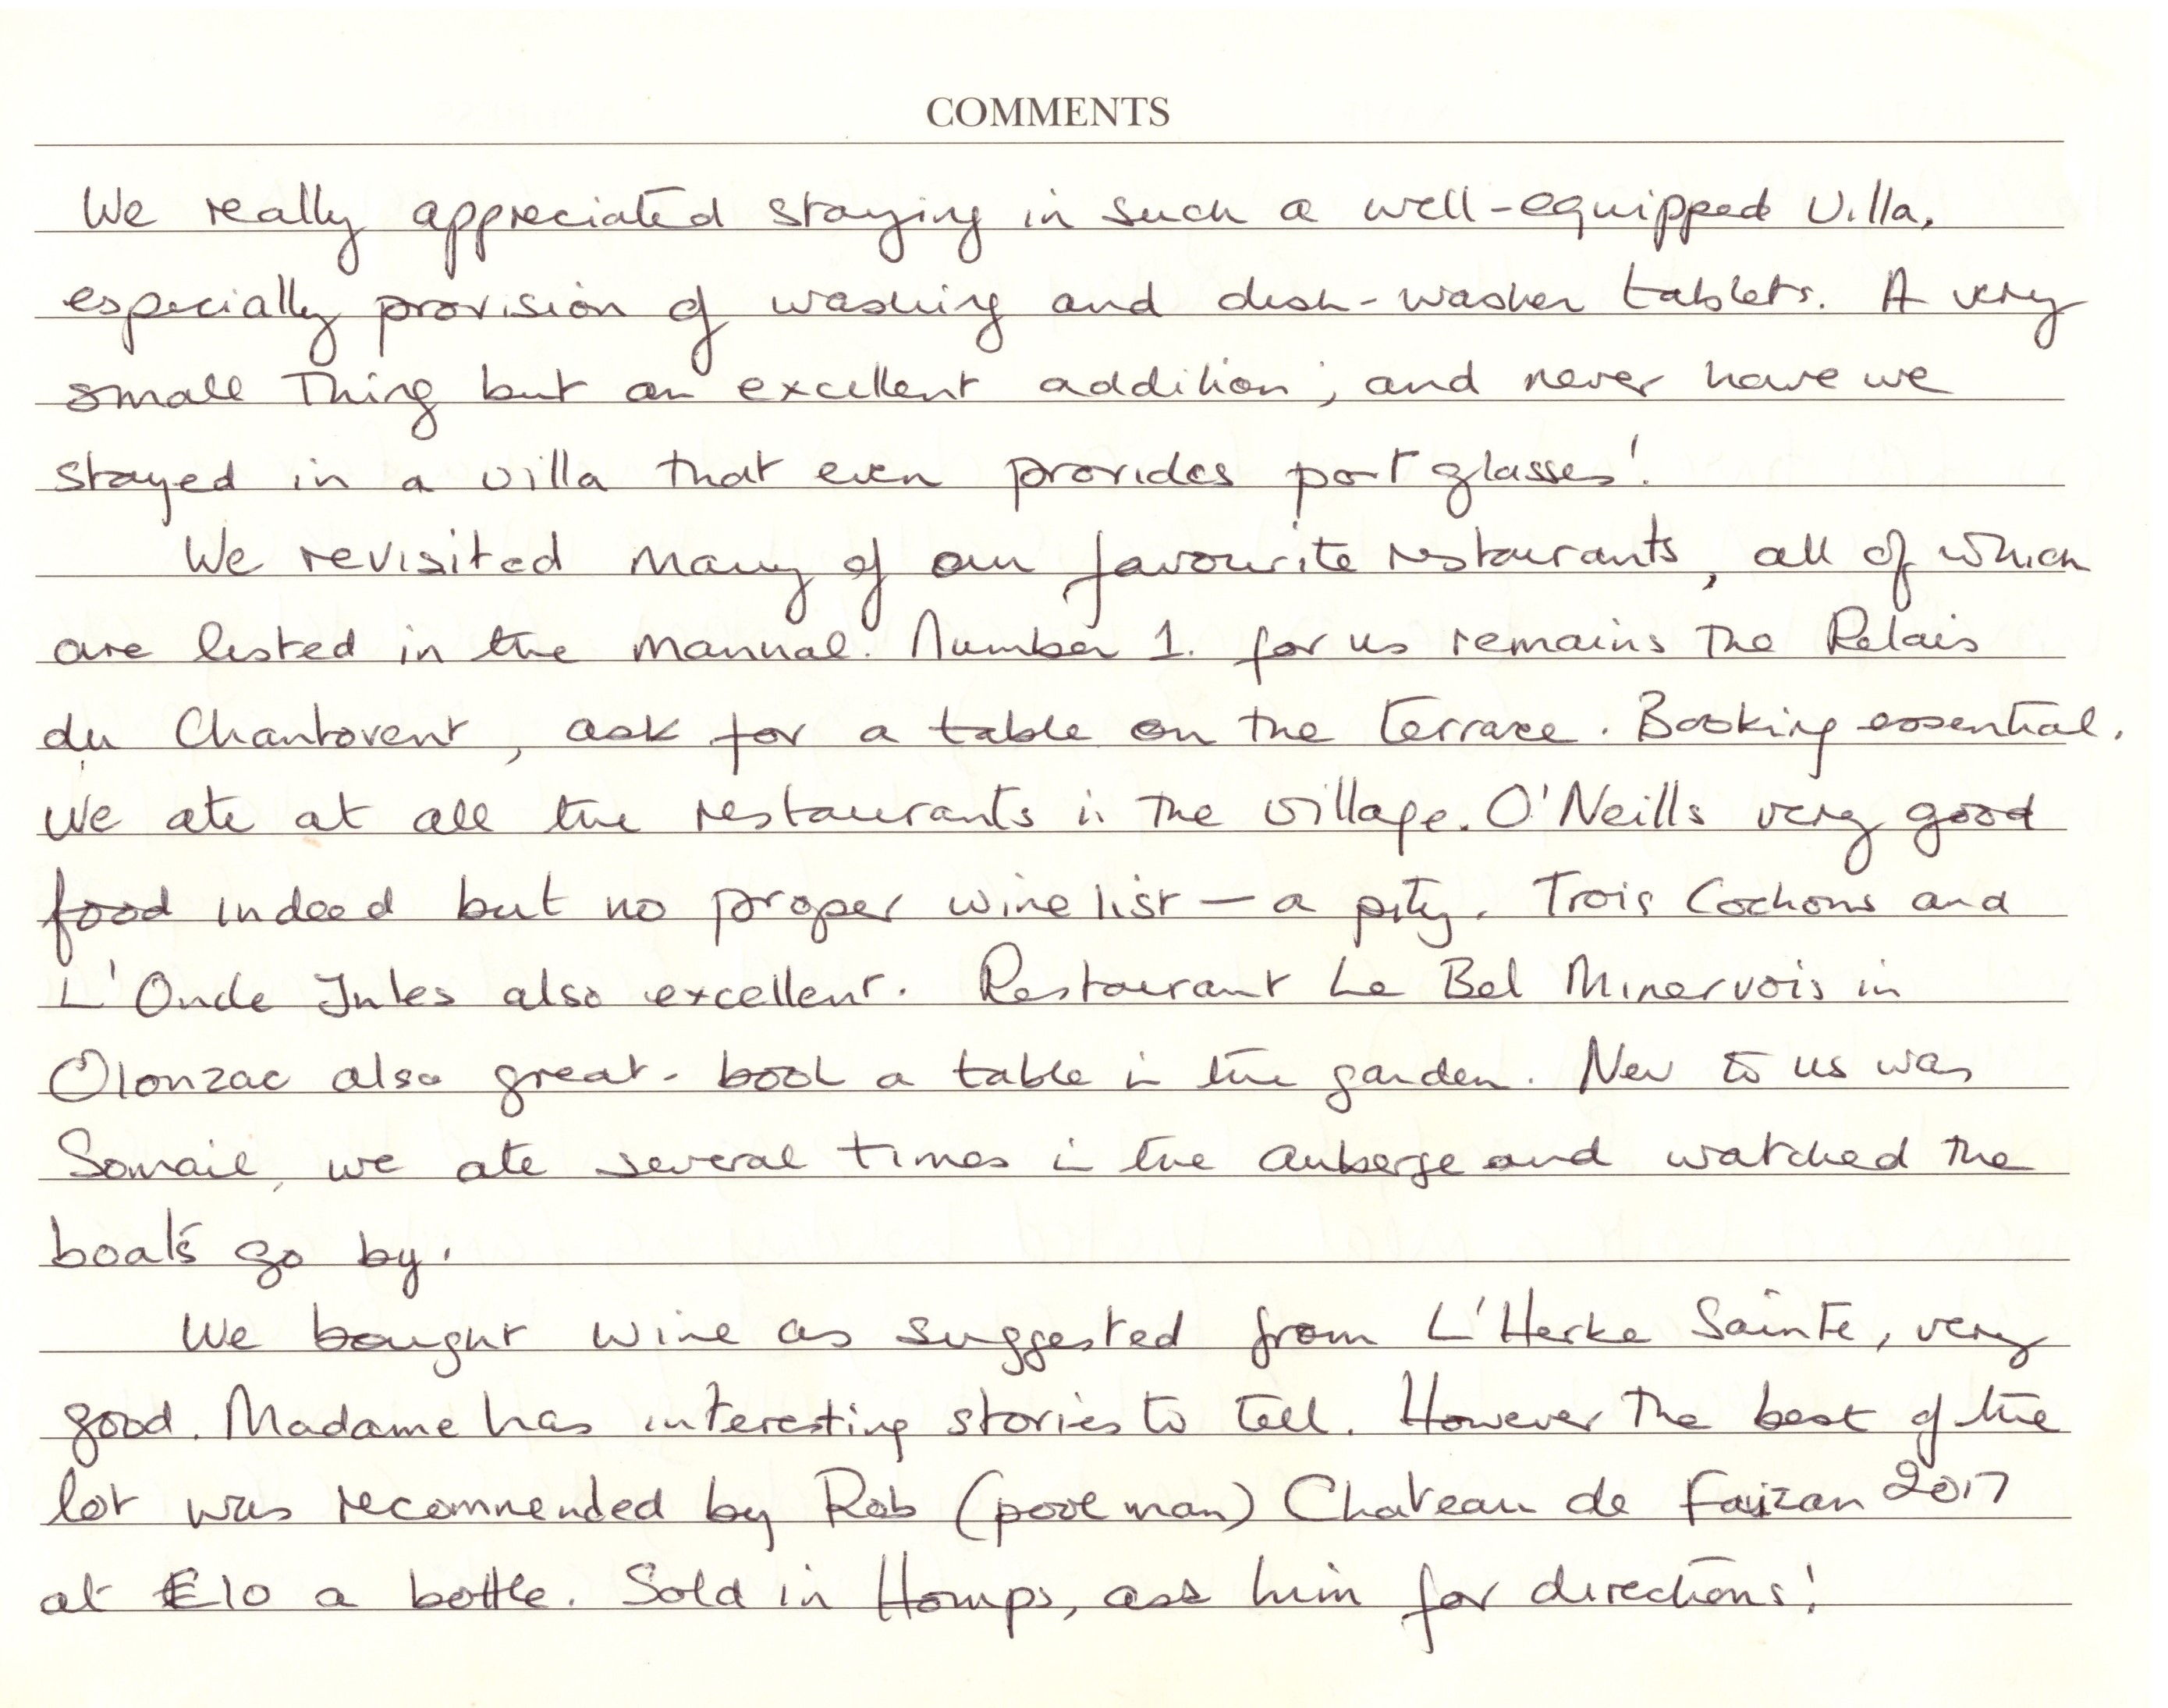 COMMENTS
We really appreciated staying in such a well-equipped villa,
especially provision of washing and dish-washer tablets. A very
small thing but an excellent addition; and never have we
stayed in a villa that even provides port glasses!
We revisited many of our favourite restaurants, all of which
are listed in the manual. Number 1. for us remains the Relais
du Chantovent, ask for a table on the terrace. Booking essential.
We ate at all the restaurants in the village. O'Neills very good
food indeed but no proper wine list – a pity. Trois Cochons and
L'Oncle Jules also excellent. Restaurant Le Bel Minervois in
Olonzac also great - book a table in the garden. New to us was
Somail, we ate several times in the auberge and watched the
boats go by.
We bought wine as suggested from L'Herbe Sainte, very
good. Madame has interesting stories to tell. However the best of the
lot was recommended by Rob (pool man) Chateau de Fauzan 2017
at €10 a bottle. Sold in Homps, ask him for directions!